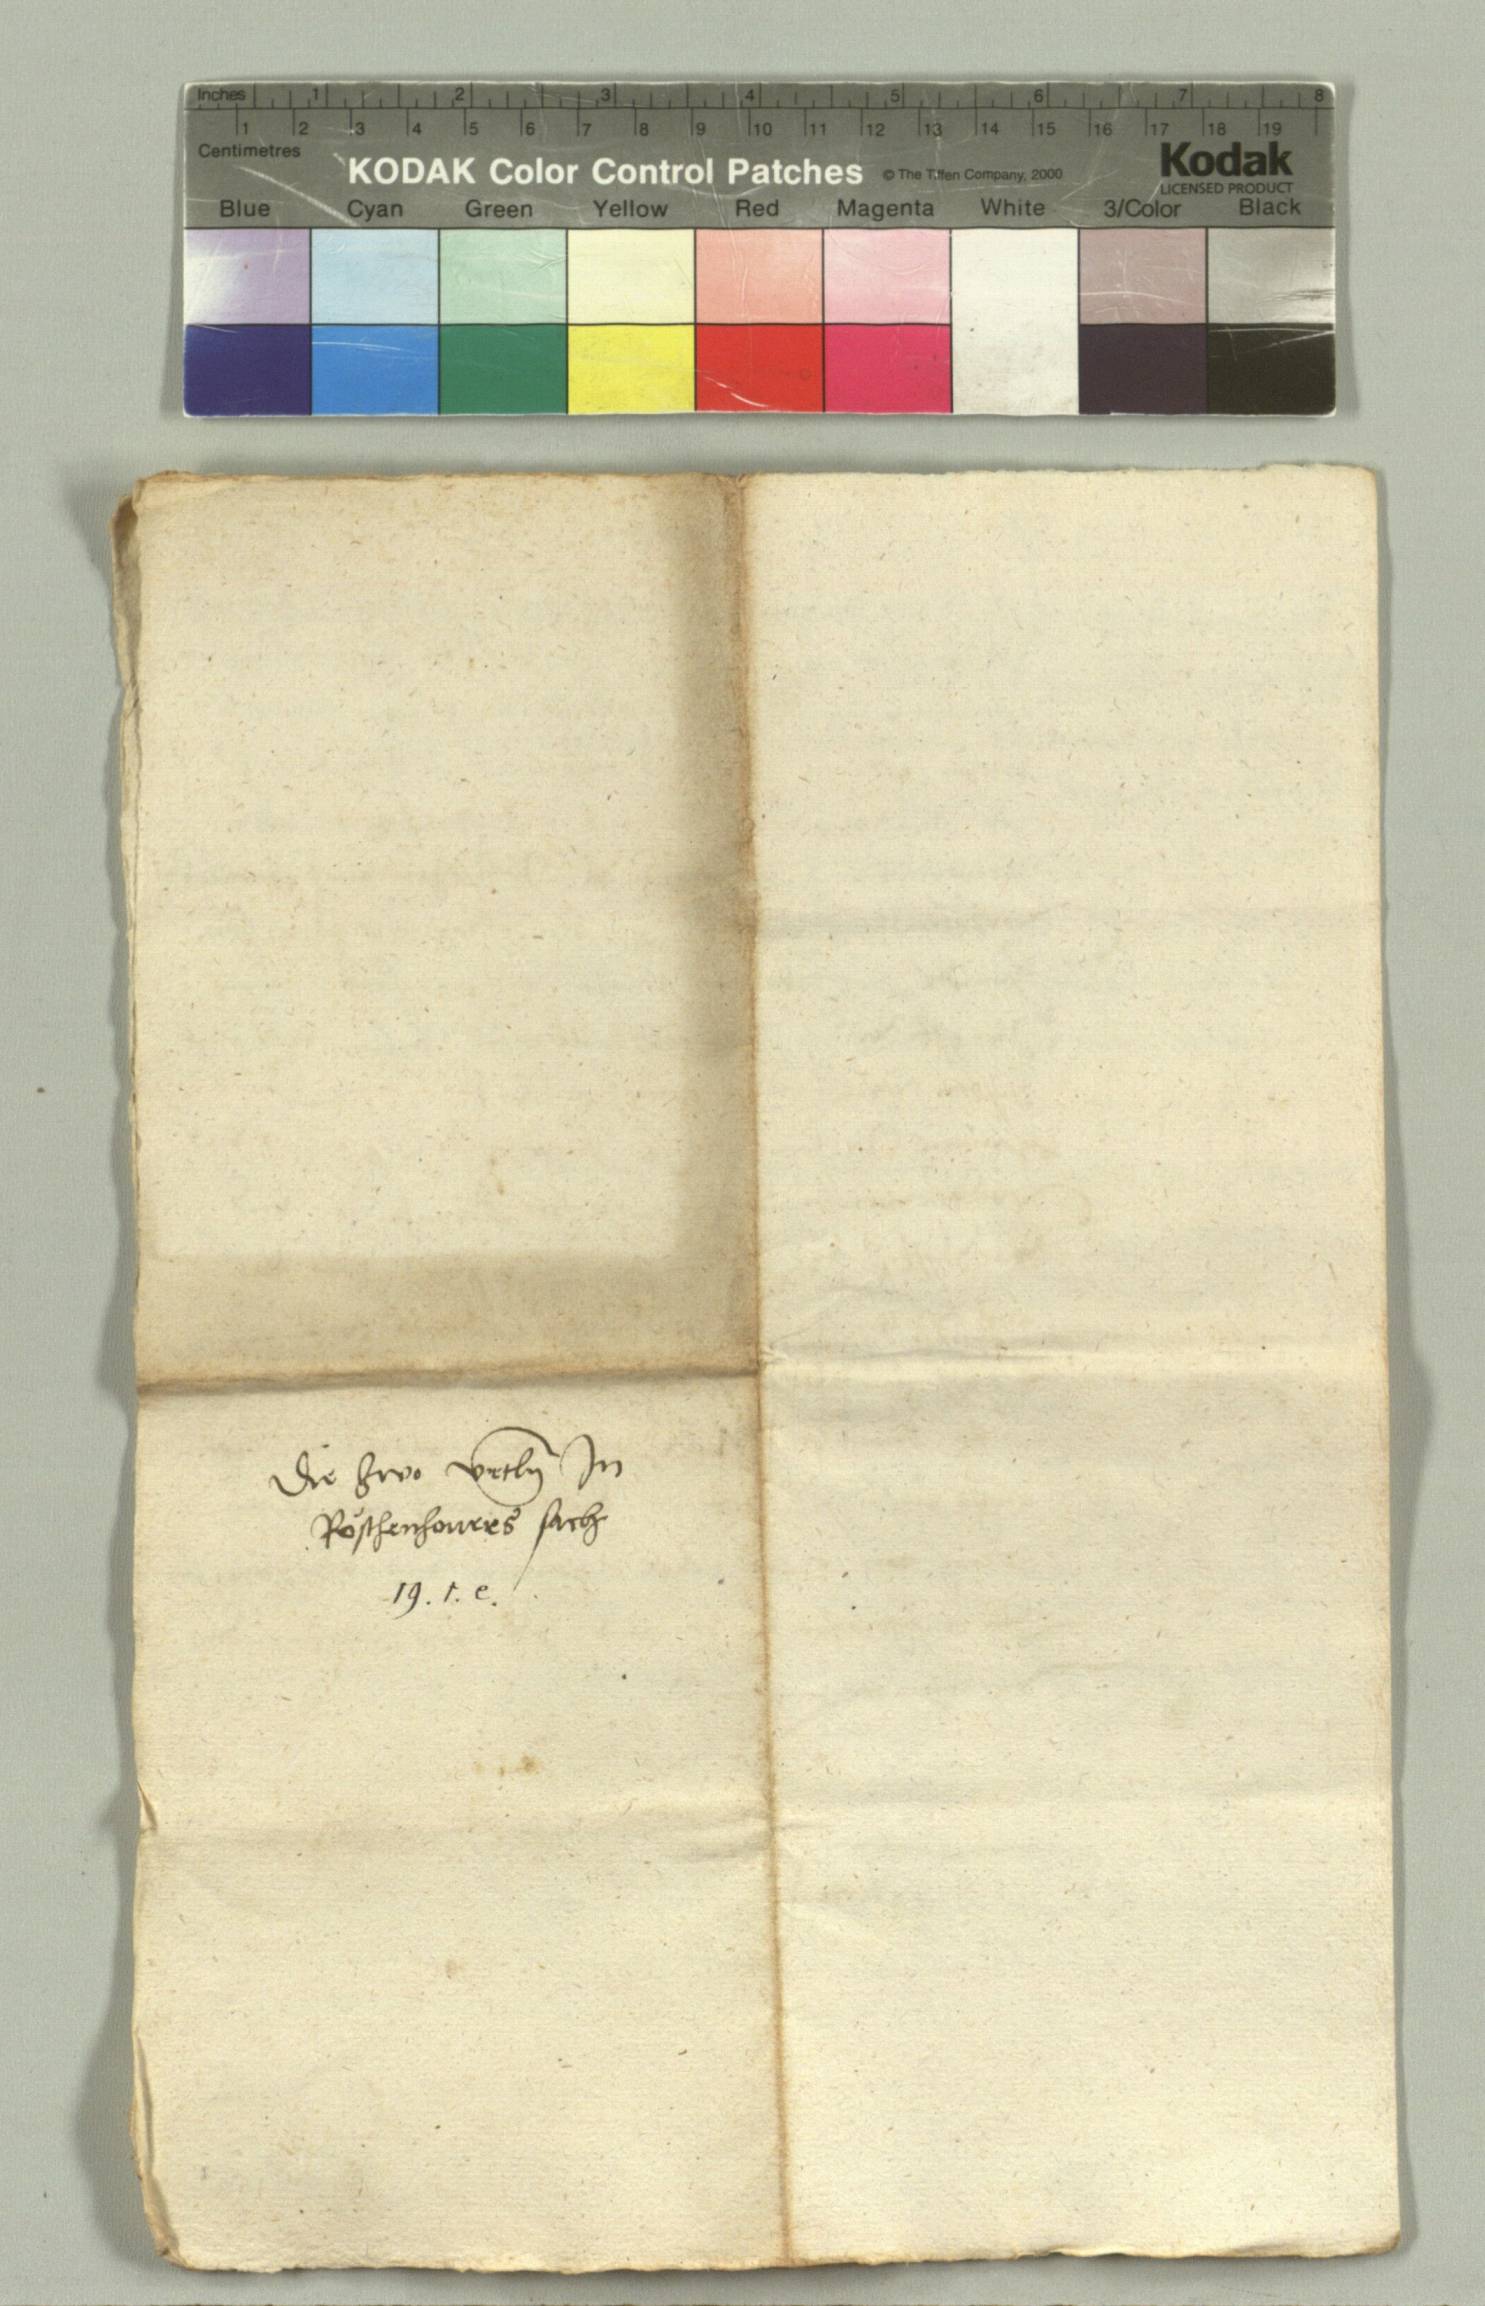 Inches 1 2 3 4 5 6 7 8
1 2 3 4 5 6 7 8 9 10 11 12 13 14 15 16 17 18 19
Centimetres
KODAK Color Control Patches © The Tiffen Company, 2000 Kodak
LICENSED PRODUCT
Blue Cyan Green Yellow Red Magenta White 3/Color Black
Die zwo vrtln In
sach
19. 1. e.